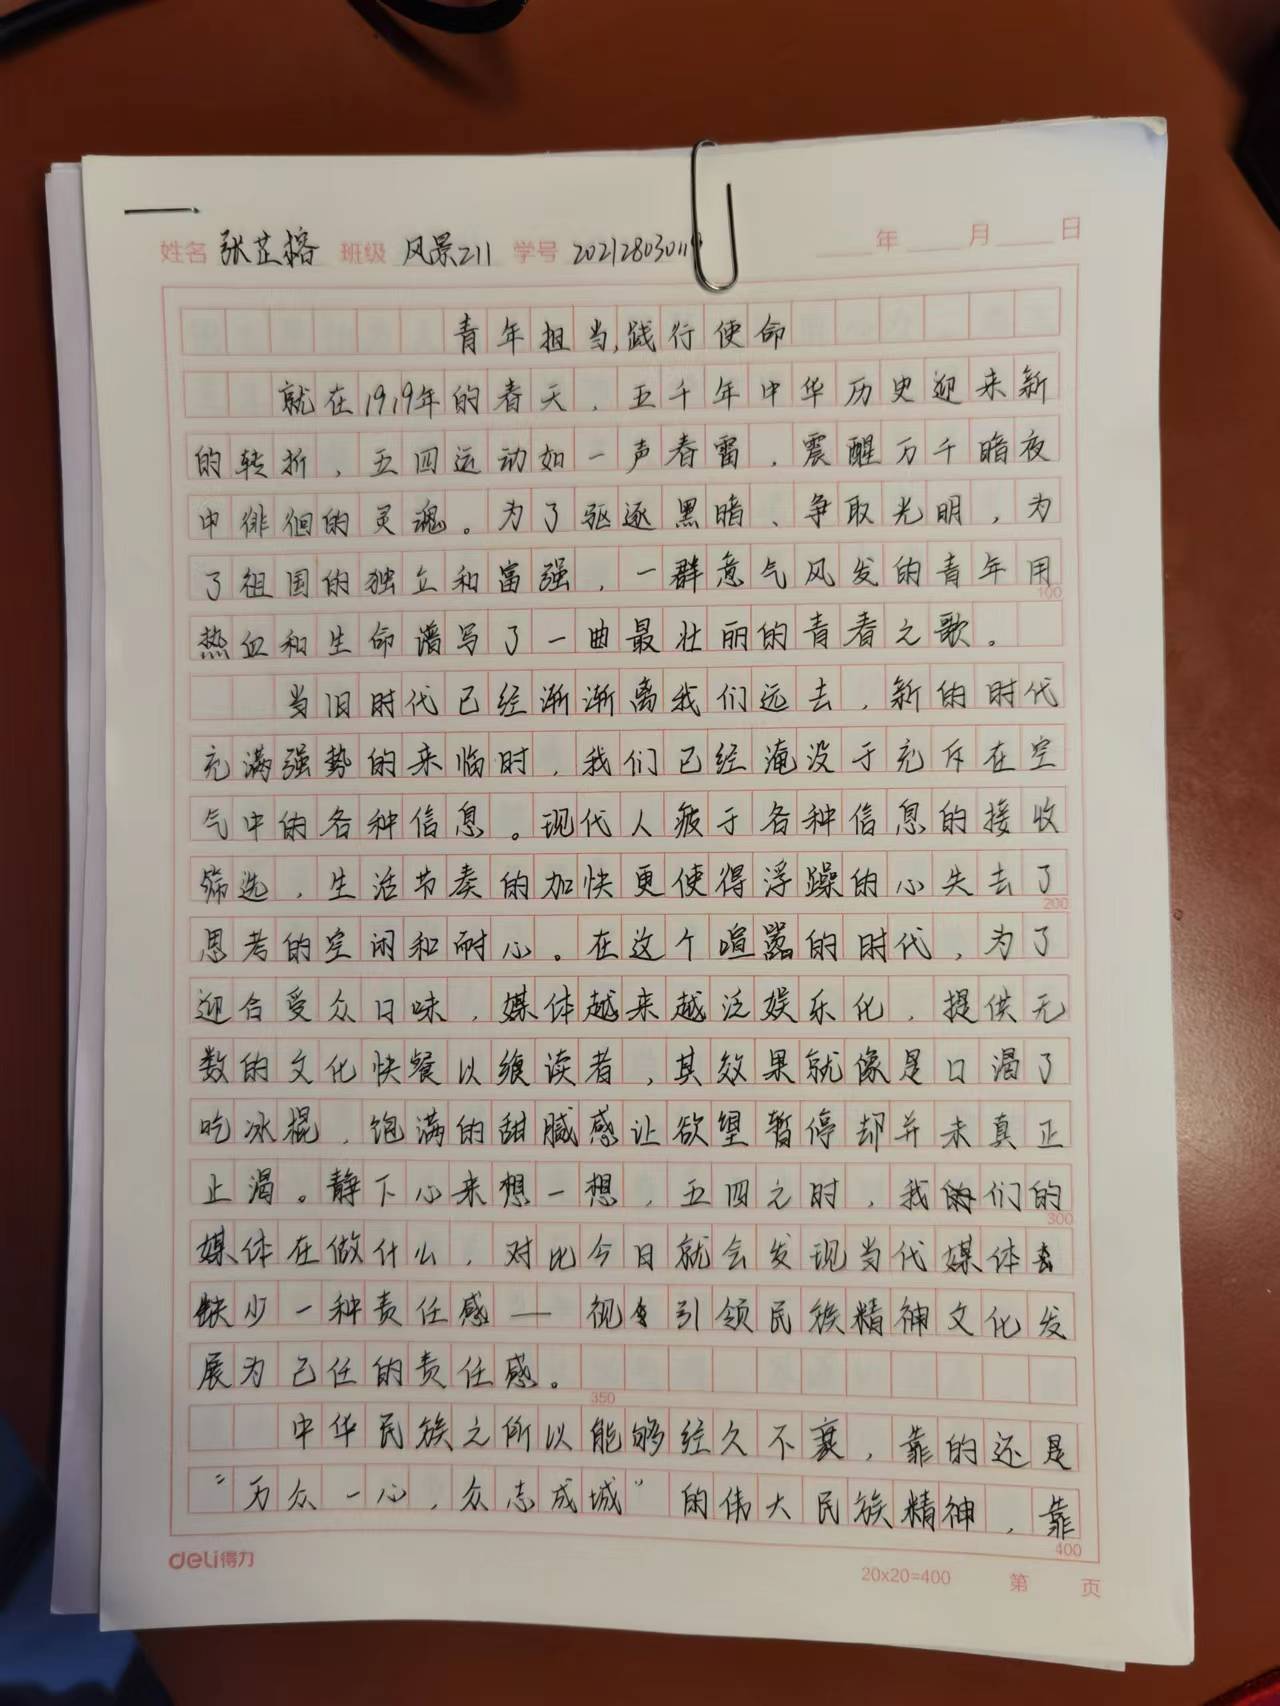 姓名 张芷榕 班级 风景211 学号 2021280301 年 月 日
青年担当,践行使命
就在1919年的春天，五千年中华历史迎来新
的转折，五四运动如一声春雷，震醒万千暗夜
中徘徊的灵魂。为了驱逐黑暗、争取光明，为
了祖国的独立和富强，一群意气风发的青年用
100
热血和生命谱写了一曲最壮丽的青春之歌。
当旧时代已经渐渐离我们远去，新的时代
充满强势的来临时，我们已经淹没于充斥在空
气中的各种信息。现代人疲于各种信息的接收
筛选，生活节奏的加快更使得浮躁的心失去了
200
思考的空闲和耐心。在这个喧嚣的时代，为了
迎合受众口味，媒体越来越泛娱乐化，提供无
数的文化快餐以飨读者，其效果就像是口渴了
吃冰棍，饱满的甜腻感让欲望暂停却并未真正
止渴。静下心来想一想，五四之时，我们的
300
媒体在做什么，对比今日就会发现当代媒体
缺少一种责任感——视引领民族精神文化发
展为己任的责任感。
350
中华民族之所以能够经久不衰，靠的还是
“万众一心，众志成城”的伟大民族精神，靠
400
deli得力 20x20=400 第 页